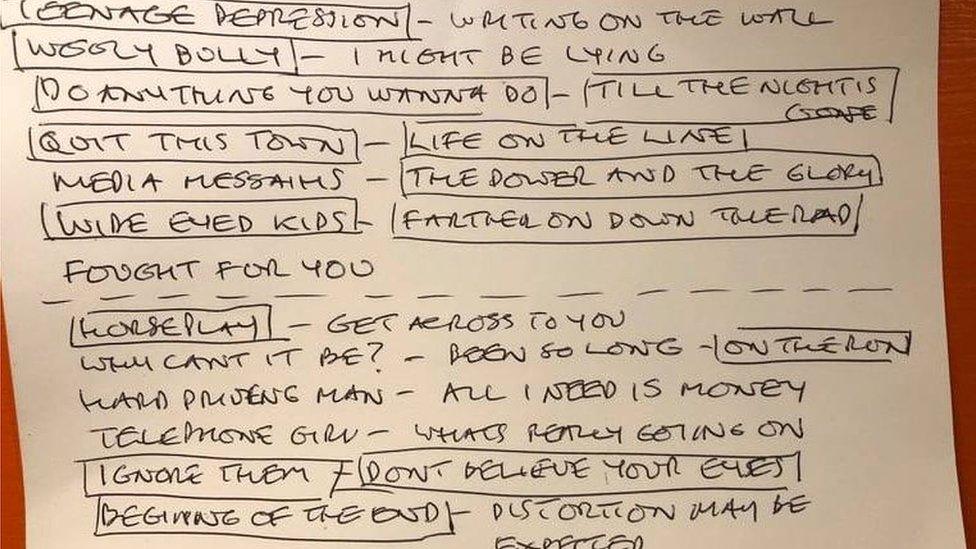 TEENAGE DEPRESSION - WRITING ON THE WALL
WOOLY BULLY - I MIGHT BE LYING
DO ANYTHING YOU WANNA DO - TILL THE NIGHT IS
GONE
QUIT THIS TOWN - LIFE ON THE LINE
MEDIA MESSAIHS - THE POWER AND THE GLORY
WIDE EYED KIDS - FARTHER ON DOWN THE ROAD
FOUGHT FOR YOU
HORSEPLAY - GET ACROSS TO YOU
WHY CANT IT BE? - BEEN SO LONG - ON THE RUN
HARD DRIVENG MAN - ALL I NEED IS MONEY
TELEPHONE GIRL - WHATS REALLY GOING ON
IGNORE THEM - DONT BELIEVE YOUR EYES
BEGINNING OF THE END - DISTORTION MAY BE
EXPECTED